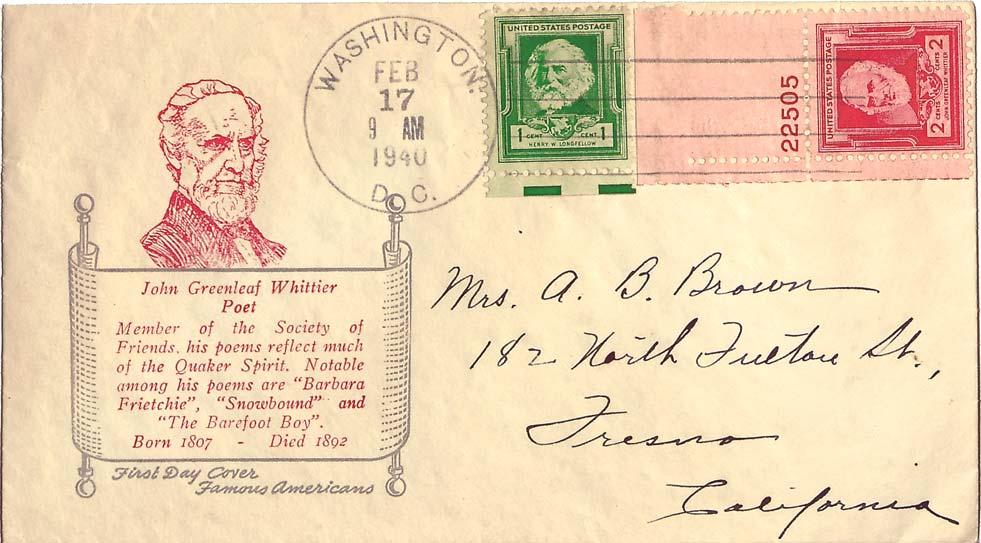 WASHINGTON.
FEB
17
9 AM
1940
D. C.
UNITED STATES POSTAGE
1 CENT CENT 1
HENRY W. LONGFELLOW
22505
UNITED STATES POSTAGE
2 CENTS CENTS 2
JOHN GREENLEAF WHITTIER
John Greenleaf Whittier
Poet
Member of the Society of
Friends, his poems reflect much
of the Quaker Spirit. Notable
among his poems are "Barbara
Frietchie", "Snowbound" and
"The Barefoot Boy".
Born 1807 - Died 1892
First Day Cover
Famous Americans
Mrs. A. B. Brown
182 North Fulton St.,
Fresno
California